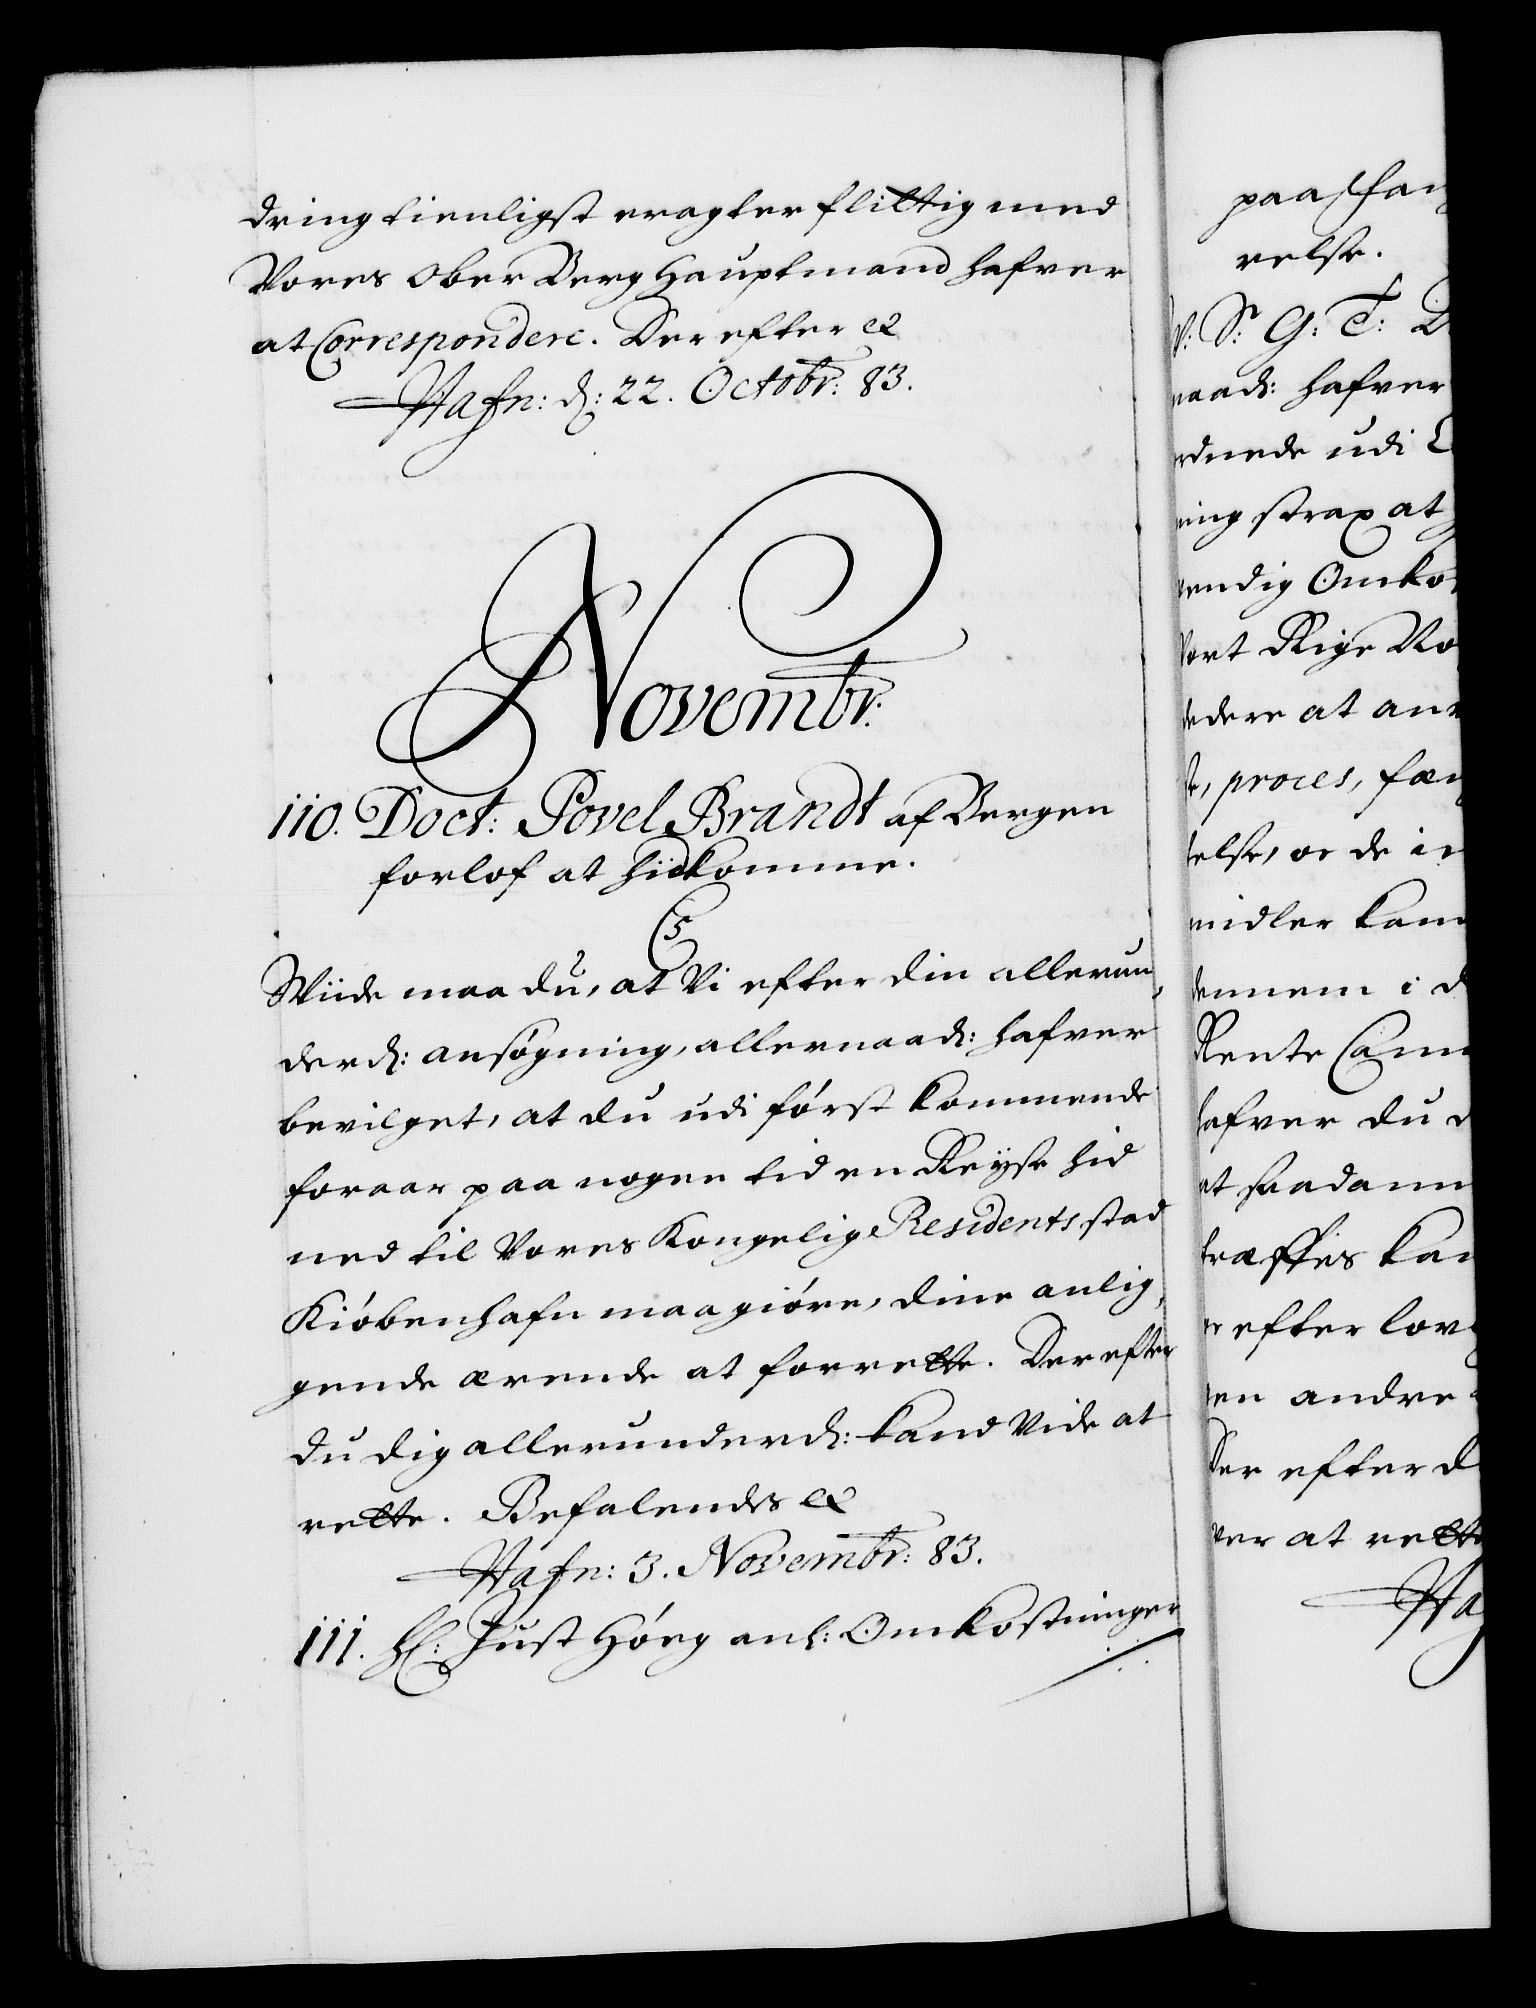 dring tienligst eragter flittig med
Vores Ober Berg Hauptmand hafver
at Correspondere. Der efter &
Hafn: d: 22. Octobr: 83.
Novembr:
110. Doct: Povel Brandt af Bergen
forlof at hidkomme.
C5
Wiide maa du, at Vi efter din allerun,
derd: ansøgning, allernaad: hafver
bevilget, at du udi først kommende
foraar paa nogen tid en Reyse hid
ned til Vores Kongelig Residents stad
Kiøbenhafn maa giøre, dine anlig,
gende ærende at forrette. Der efter
du dig allerunderd: kand vide at
rette. Befalendes &
Hafn: 3. Novembr: 83.
111. H: Just Høeg anl: Omkostninger
paa
relse.
Sr: G: T:
naad: hafver
udi
strax at
Omko
Vort Rige No
at
proces, fæn
de
midler kan
i d
Rente Cam
hafver du
at saadann
træffes kan
efter lov
en andre
Der efter d
ver at rette
Ha